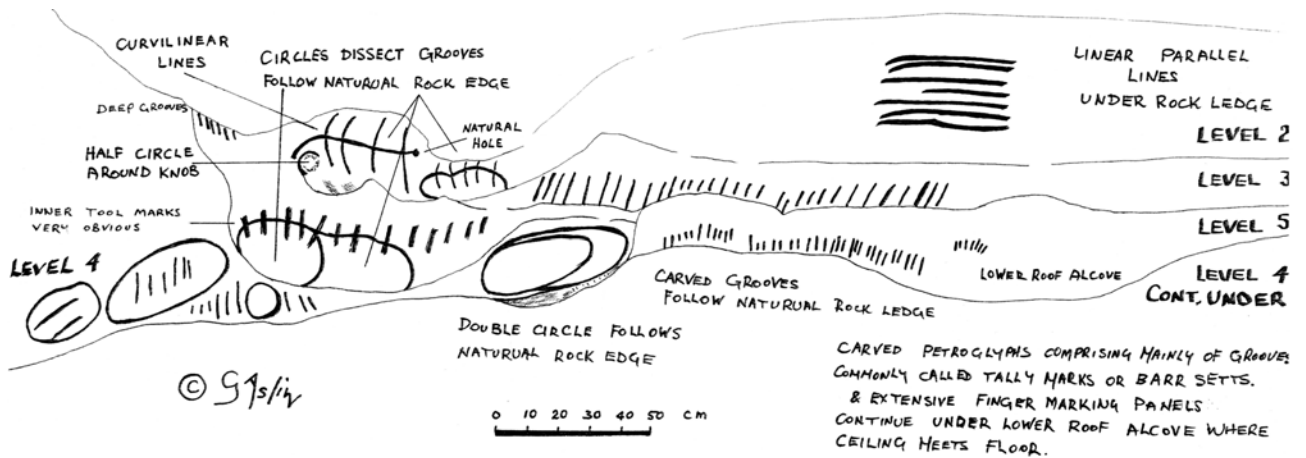 CURVILINEAR
LINES
CIRCLES DISSECT GROOVES
FOLLOW NATURUAL ROCK EDGE
DEEP GROOVES
NATURAL
HOLE
HALF CIRCLE
AROUND KNOB
INNER TOOL MARKS
VERY OBVIOUS
LEVEL 4
LINEAR PARALLEL
LINES
UNDER ROCK LEDGE
LEVEL 2
LEVEL 3
LEVEL 5
LOWER ROOF ALCOVE
LEVEL 4
CONT, UNDER
CARVED GROOVES
FOLLOW NATURUAL ROCK LEDGE
DOUBLE CIRCLE FOLLOWS
NATURUAL ROCK EDGE
©
0 10 20 30 40 50 CM
CARVED PETROGLYPHS COMPRISING MAINLY OF GROOVES
COMMONLY CALLED TALLY MARKS OR BARR SETTS.
& EXTENSIVE FINGER MARKING PANELS
CONTINUE UNDER LOWER ROOF ALCOVE WHERE
CEILING MEETS FLOOR.